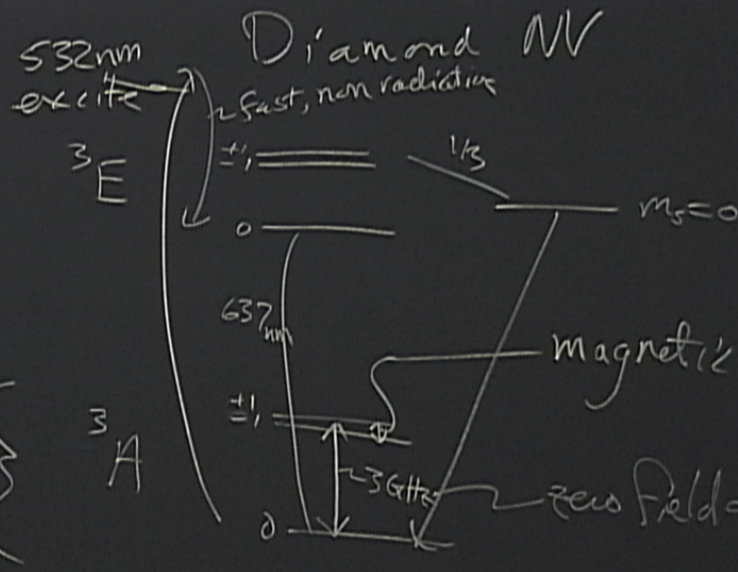 Diamond NV
532nm
excite
~ fast, non radiative
³E
±1
1/3
m_s=0
0
637nm
magnetic
±1
³A
~3GHz
zero field
0